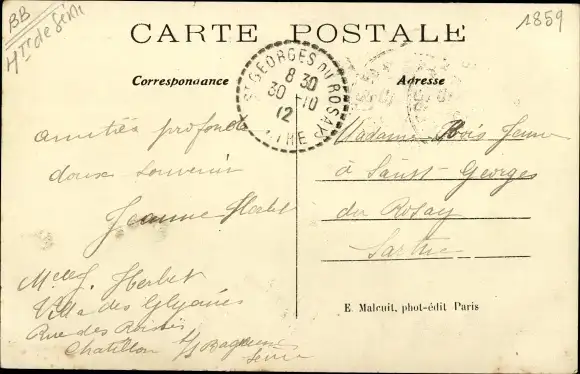 BB
Hte de Seine
1859
CARTE POSTALE
Correspondance
Adresse
ST GEORGES DU ROSAY
8 30
30 -10
12
SARTHE
amitiés profondes
doux souvenir
Jeanne Herbet
Madame Bois Jeune
à Saint-Georges
du Rosay
Sarthe
Melle J. Herbet
Villa des Glycines
Rue des
Chatillon s/s Bagneux
Seine
E. Malcuit, phot-édit Paris